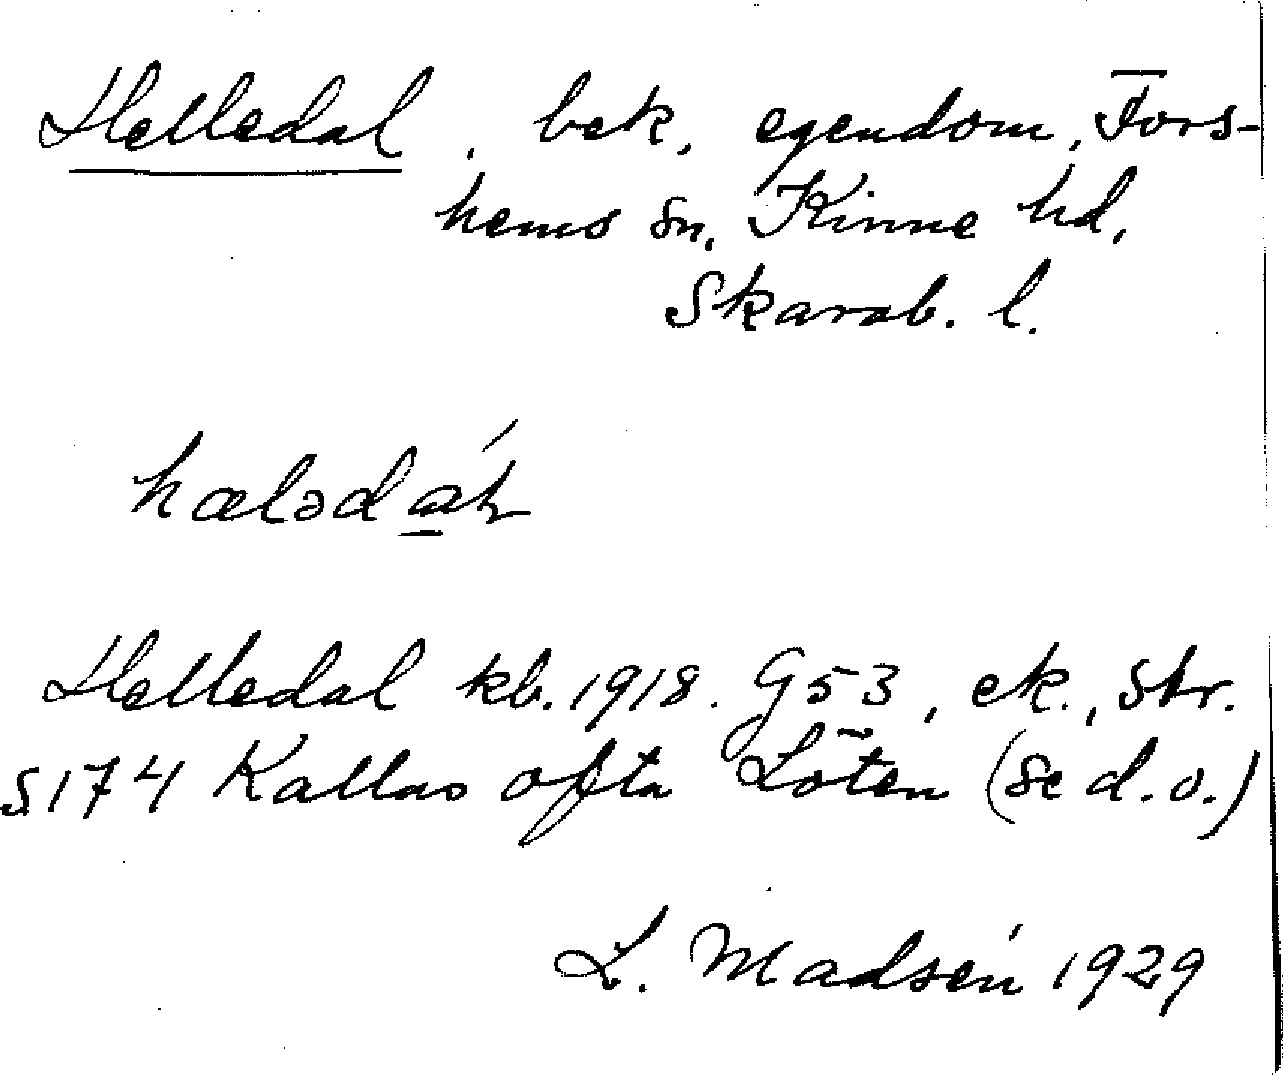 Helledal, bek. egendom, Fors-
hems sn, Kinne hd,
Skarab. l.
hælədaɫ
Helledal kb. 1918. G53, ek., Str.
S174 Kallas ofta Löten (se d.o.)
L. Madsén 1929